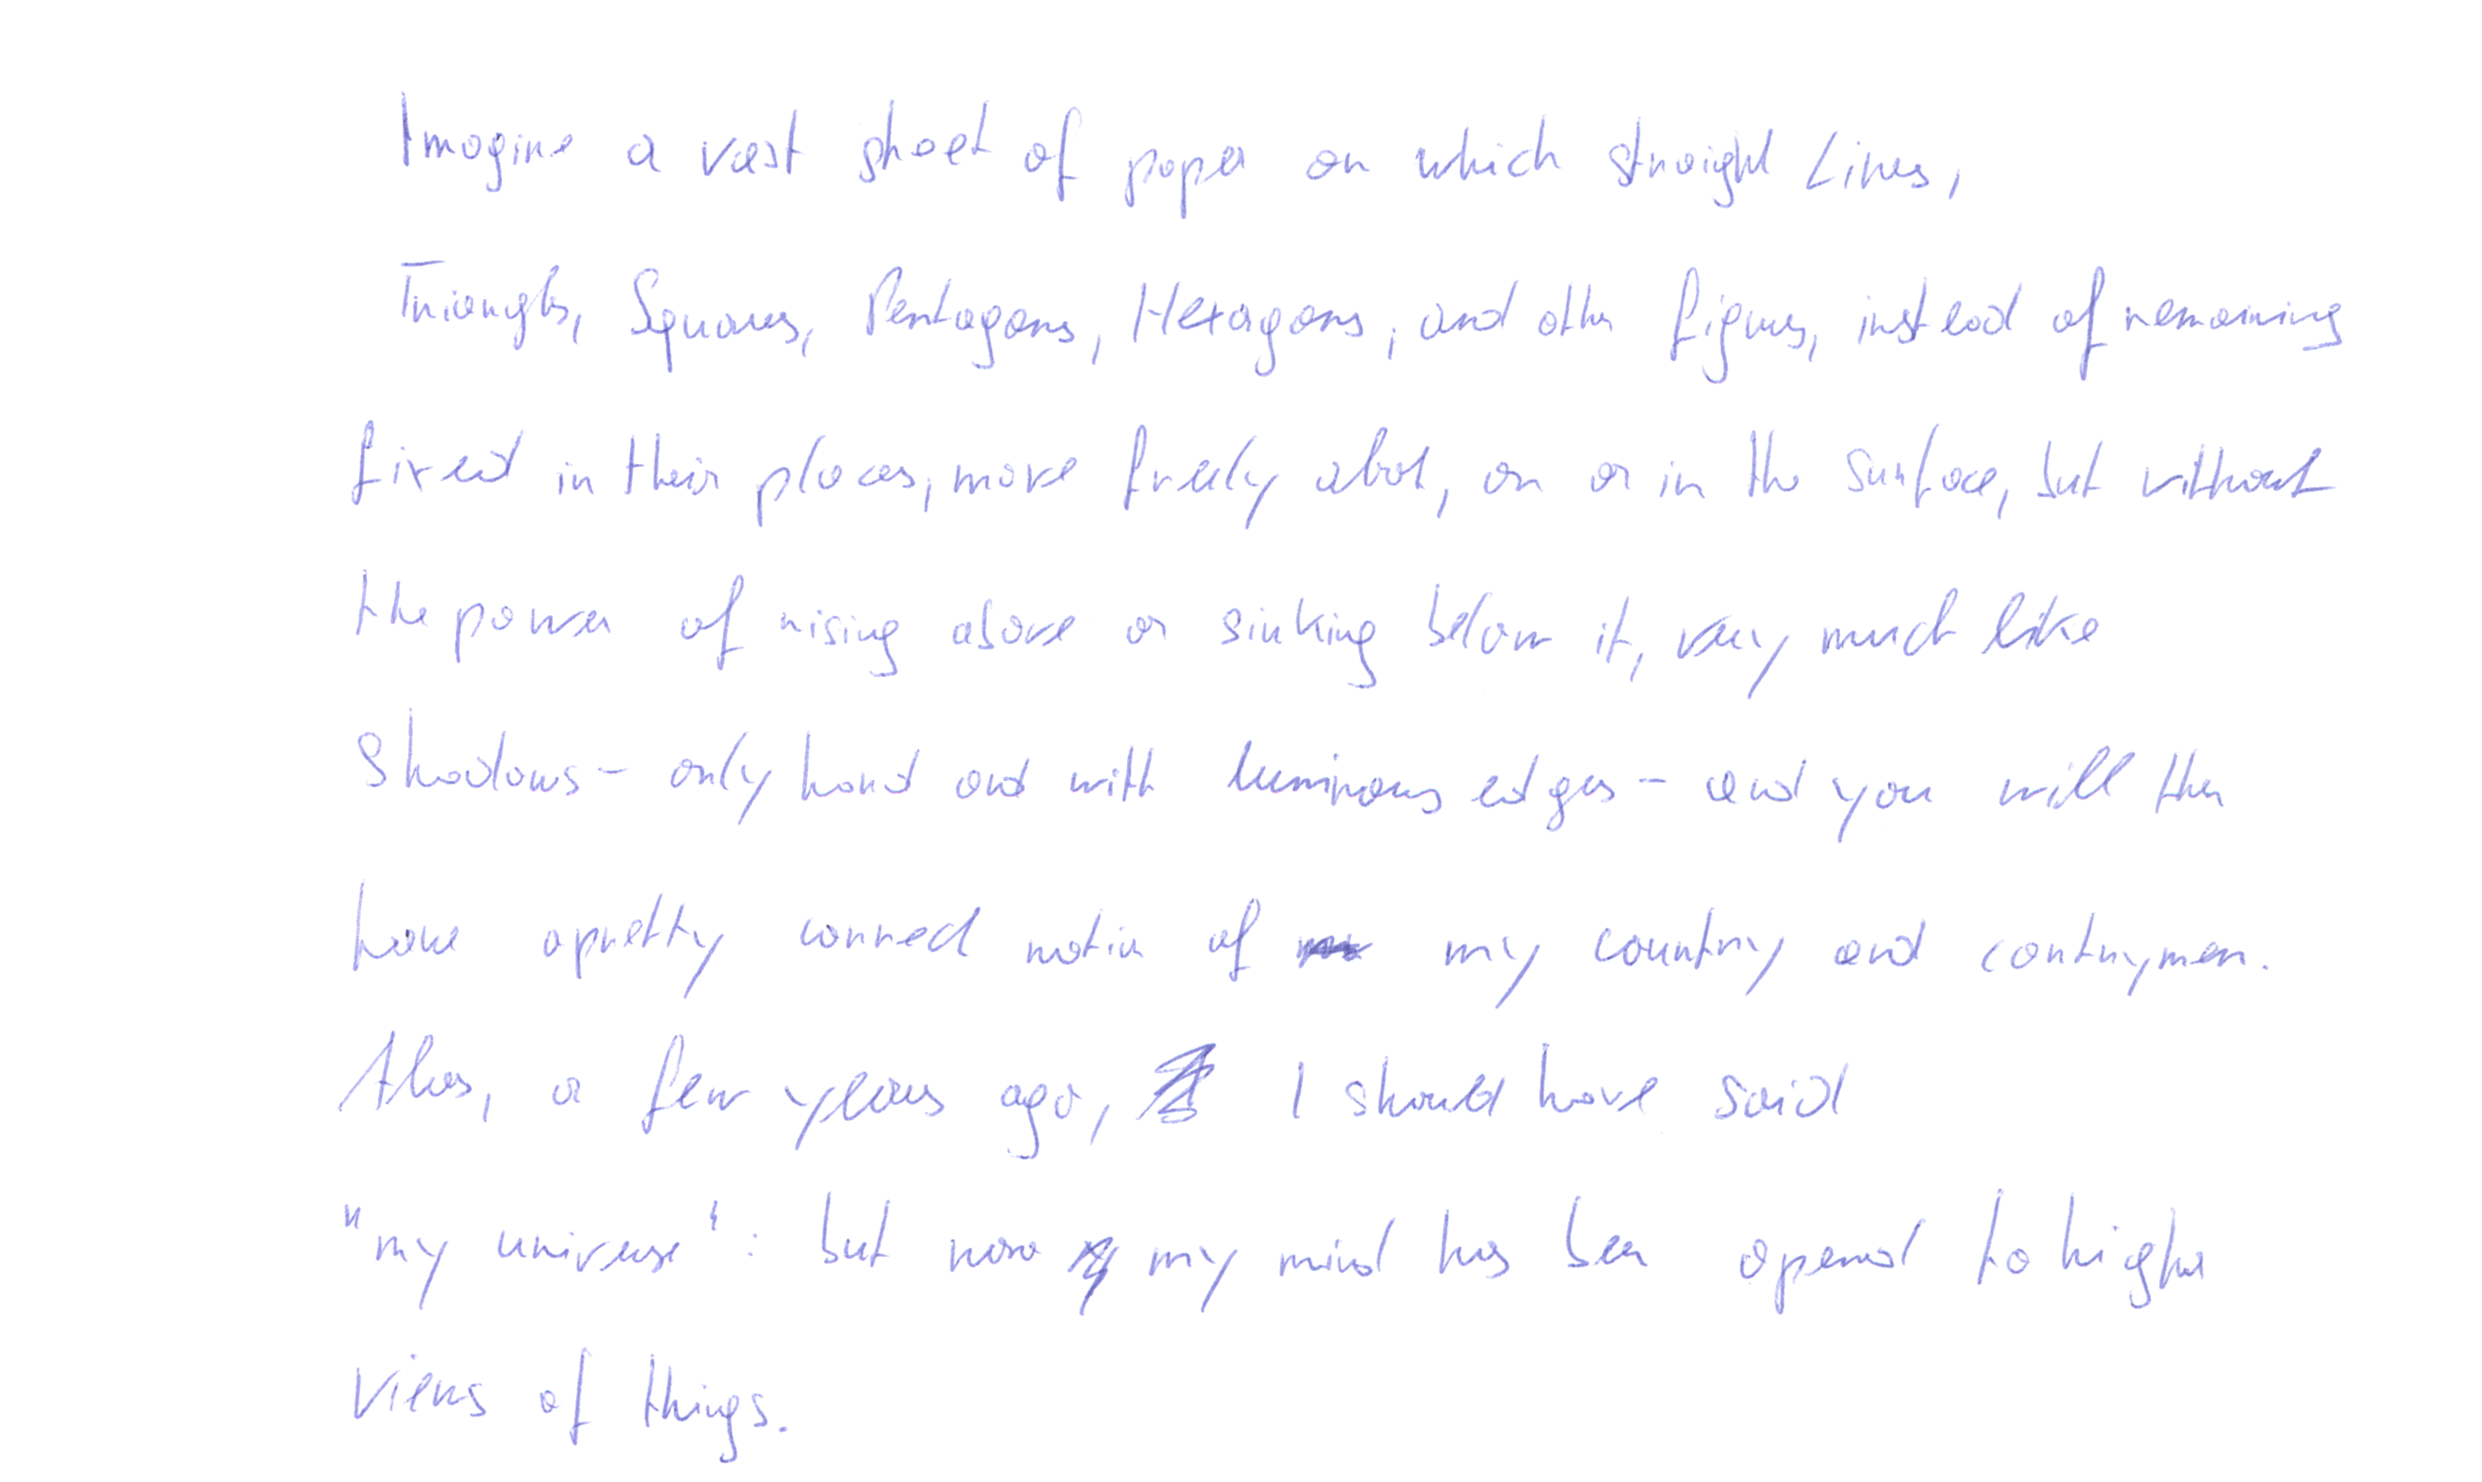 Imagine a vast sheet of paper on which straight Lines,
Triangles, Squares, Pentagons, Hexagons, and other figures, instead of remaining
fixed in their places, move freely about, on or in the surface, but without
the power of rising above or sinking below it, very much like
shadows - only hard and with luminous edges - and you will then
have a pretty correct notion of my country and contrymen.
Alas, a few years ago, I should have said
"my universe": but now my mind has been opened to higher
views of things.